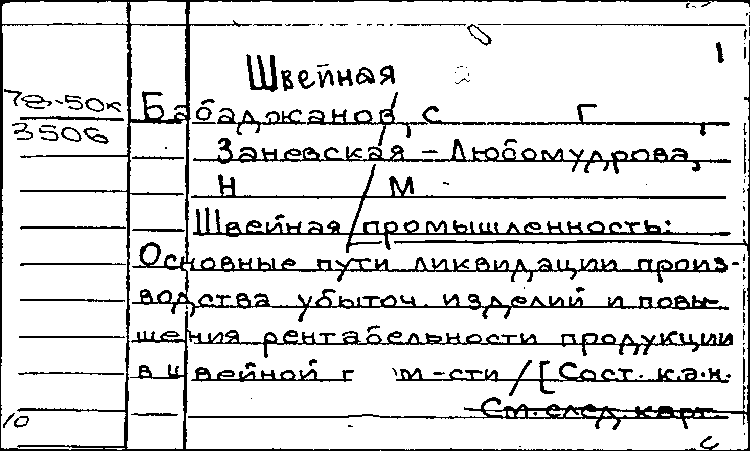 1
Швейная
78-50к
Бабаджанов, С Г,
3506
Заневская - Любомудрова,
Н М
Швейная промышленность:
Основные пути ликвидации произ-
водства убыточ. изделий и повы-
шения рентабельности продукции
в швейной п м-сти / [Сост. к.э.н.
См. след. карт.
10